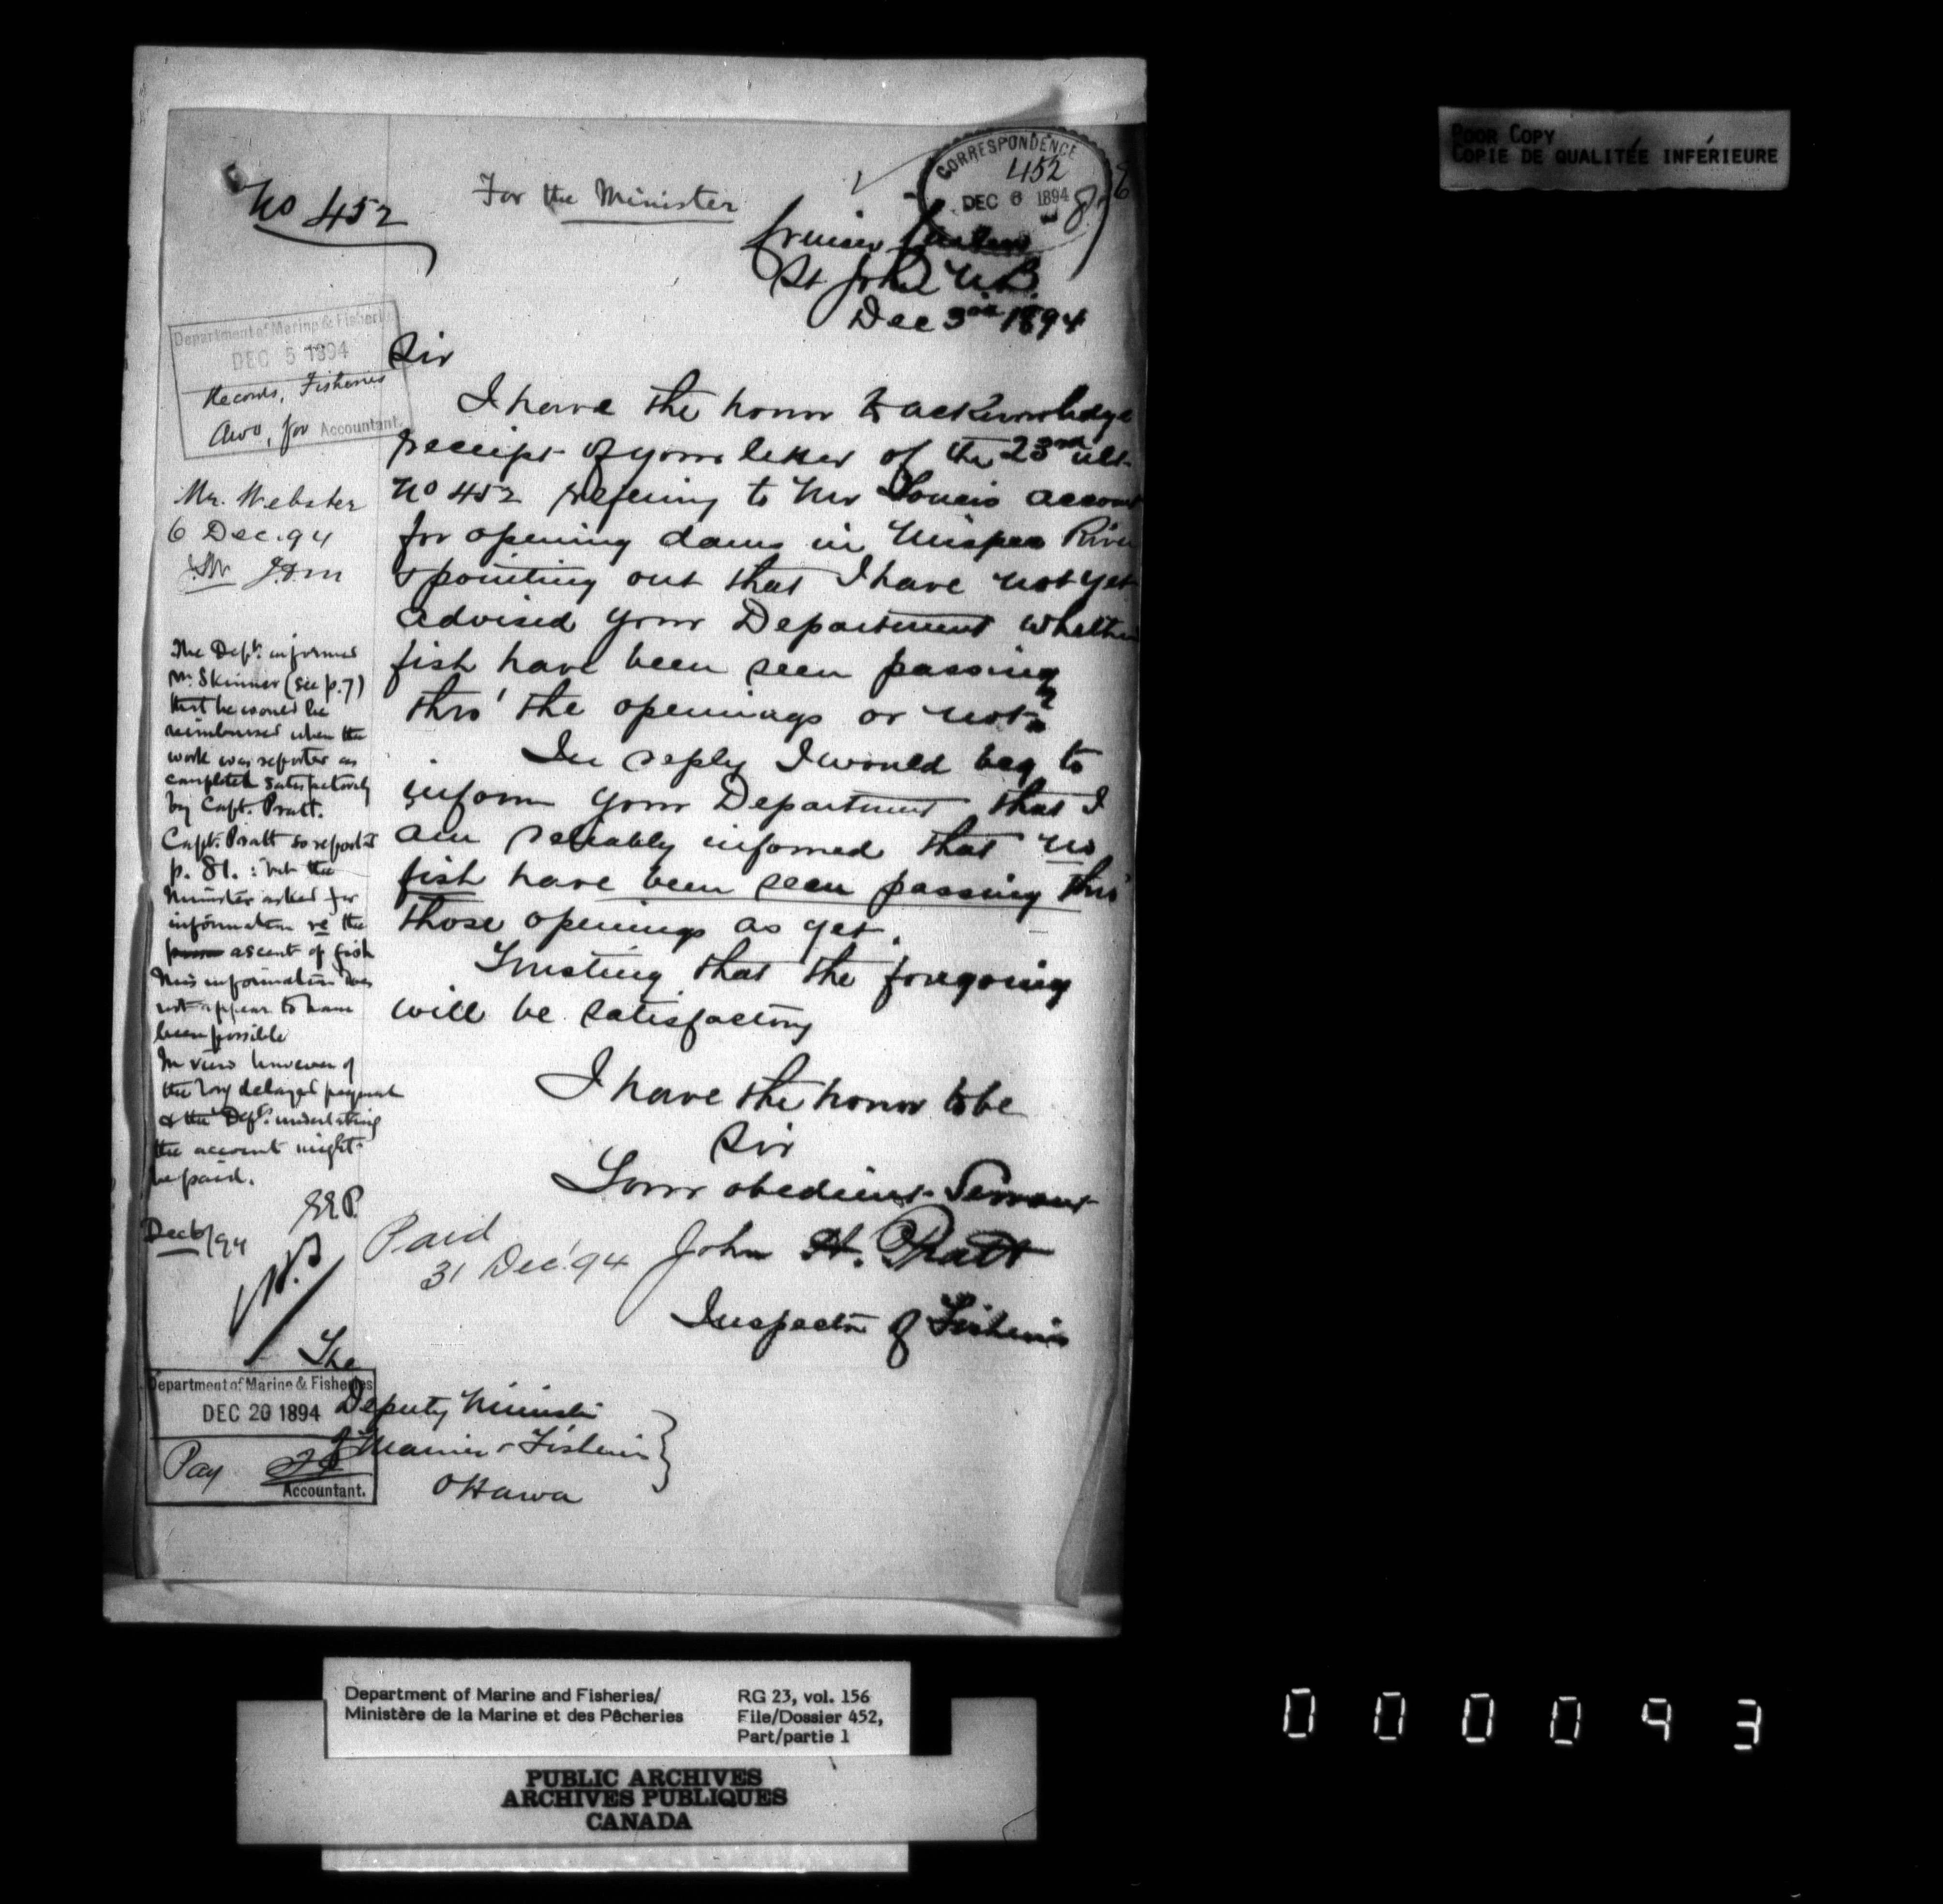 POOR COPY
COPIE DE QUALITÉE INFÉRIEURE
CORRESPONDENCE
452
DEC 6 1894
No 452
For the Minister
Cruiser Curlew
St John N.B.
Dec 3rd 1894
Department of Marine & Fisheries
DEC 5 1894
Records, Fisheries
for Accountant.
Sir
I have the honor to acknowledge
receipt of your letter of the 23rd ult
No 452 refering to Mr account
for opening dams in Mispec River
& pointing out that I have not yet
advised your Department whether
fish have been seen passing
thro' the openings or not
In reply I would beg to
inform your Department that I
am reliably informed that no
fish have been seen passing thro'
those openings as yet.
Trusting that the foregoing
will be satisfactory
I have the honor to be
Sir
Your obedient Servant
John H. Pratt
Inspector of Fisheries
The
Deputy Minister
of Marine & Fisheries
Ottawa
Mr. Webster
6 Dec. 94
The Dept. informed
Mr. Skinner (see p. 7)
that he would be
reimbursed when the
work was reported as
completed satisfactorily
by Capt. Pratt.
Capt. Pratt so reported
p. 81. : but the
Minister asked for
information re the
ascent of fish
This information does
not appear to have
been possible
In view however of
the long delayed payment
& the Dept's. undertaking
the account might
be paid.
EEP.
Dec 6/94
Paid
31 Dec. '94
Department of Marine & Fisheries
DEC 20 1894
Pay
Accountant.
Department of Marine and Fisheries/
Ministère de la Marine et des Pêcheries
RG 23, vol. 156
File/Dossier 452,
Part/partie 1
PUBLIC ARCHIVES
ARCHIVES PUBLIQUES
CANADA
000093